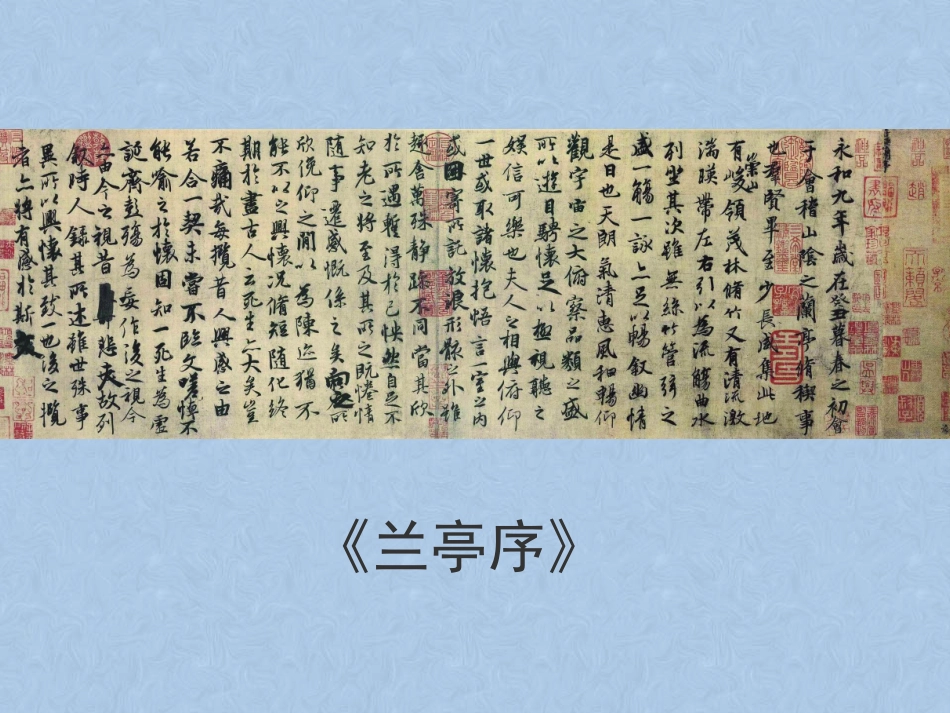 永和九年歲在癸丑暮春之初會
于會稽山陰之蘭亭脩稧事
也羣賢畢至少長咸集此地
有崇山峻領茂林脩竹又有清流激
湍暎帶左右引以為流觴曲水
列坐其次雖無絲竹管弦之
盛一觴一詠亦足以暢敘幽情
是日也天朗氣清惠風和暢仰
觀宇宙之大俯察品類之盛
所以遊目騁懷足以極視聽之
娛信可樂也夫人之相與俯仰
一世或取諸懷抱悟言一室之內
或因寄所託放浪形骸之外雖
趣舍萬殊靜躁不同當其欣
於所遇蹔得於己怏然自足不
知老之將至及其所之既惓情
隨事遷感慨係之矣向之所
欣俛仰之閒以為陳迹猶不
能不以之興懷況脩短隨化終
期於盡古人云死生亦大矣豈
不痛哉每攬昔人興感之由
若合一契未嘗不臨文嗟悼不
能喻之於懷固知一死生為虛
誕齊彭殤為妄作後之視今
亦由今之視昔悲夫故列
敘時人錄其所述雖世殊事
異所以興懷其致一也後之攬
者亦將有感於斯文
《兰亭序》